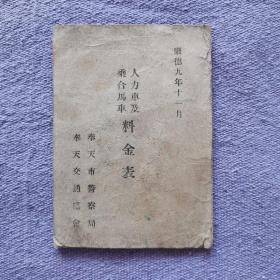 康德九年十一月
人力車及
乘合馬車
料金表
奉天市警察局
奉天交通協會